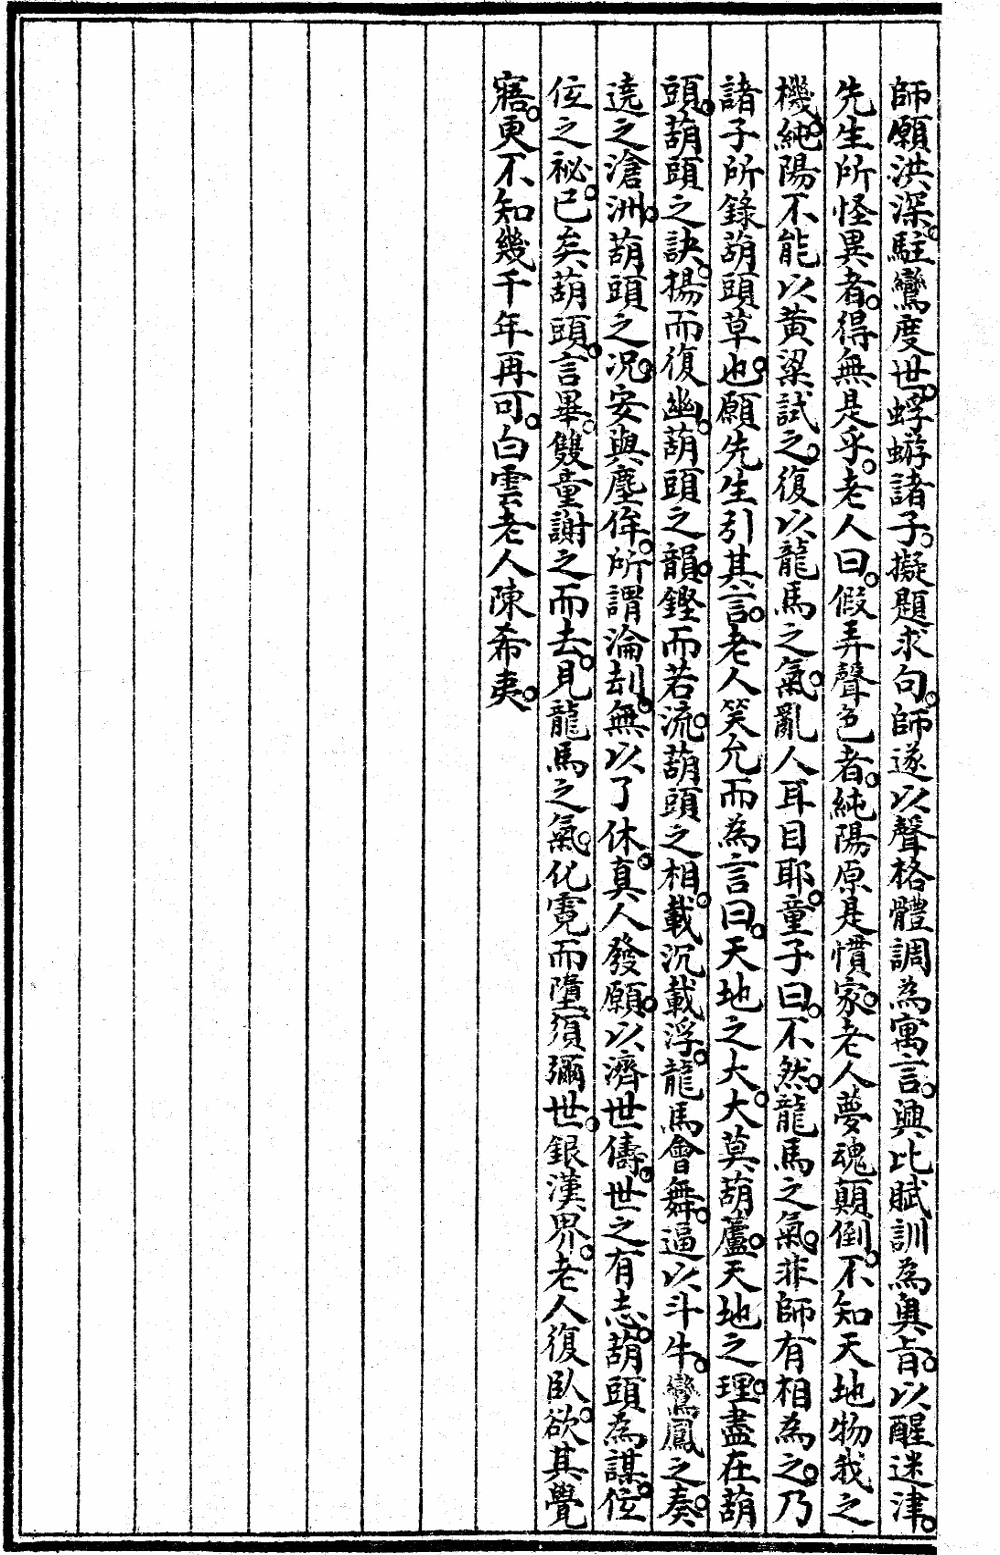 師願洪深。駐鸞度世。蜉蝣諸子。擬題求句。師遂以聲格體調為寓言。興比賦訓為奧旨。以醒迷津。
先生所怪異者。得無是乎。老人曰。假弄聲色者。純陽原是慣家。老人夢魂顛倒。不知天地物我之
機。純陽不能以黄粱試之。復以龍馬之氣。亂人耳目耶。童子曰。不然。龍馬之氣。非師有相為之。乃
諸子所錄葫頭草也。願先生引其言。老人笑允而為言曰。天地之大。大莫葫蘆。天地之理。盡在葫
頭。葫頭之訣。揚而復幽。葫頭之韻。鏗而若流。葫頭之相。載沉載浮。龍馬會舞。逼以斗牛。鸞鳳之奏。
遶之滄洲。葫頭之况。安與塵侔。所謂淪刦。無以了休。真人發願。以濟世儔。世之有志。葫頭為謀。侄
侄之祕。已矣葫頭。言畢。雙童謝之而去。見龍馬之氣。化霓而墮須彌世。銀漢界。老人復臥。欲其覺
寤。更不知幾千年再可。白雲老人陳希夷。